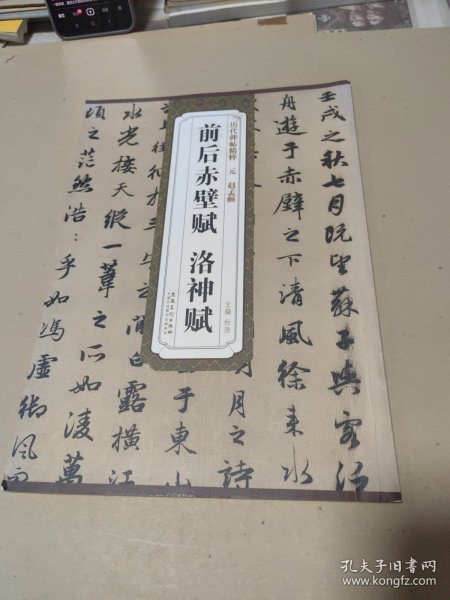 历代碑帖精粹 元 赵孟頫
前后赤壁赋 洛神赋
主编 杜浩
安徽美术出版社
壬戌之秋七月既望苏子與客泛
舟遊于赤壁之下清風徐来水
月之詩
于東山
白露橫江
水光接天縱一葦之所如凌萬
頃之茫然浩:乎如馮虚御風而
孔夫子旧书网
www.kongfz.com